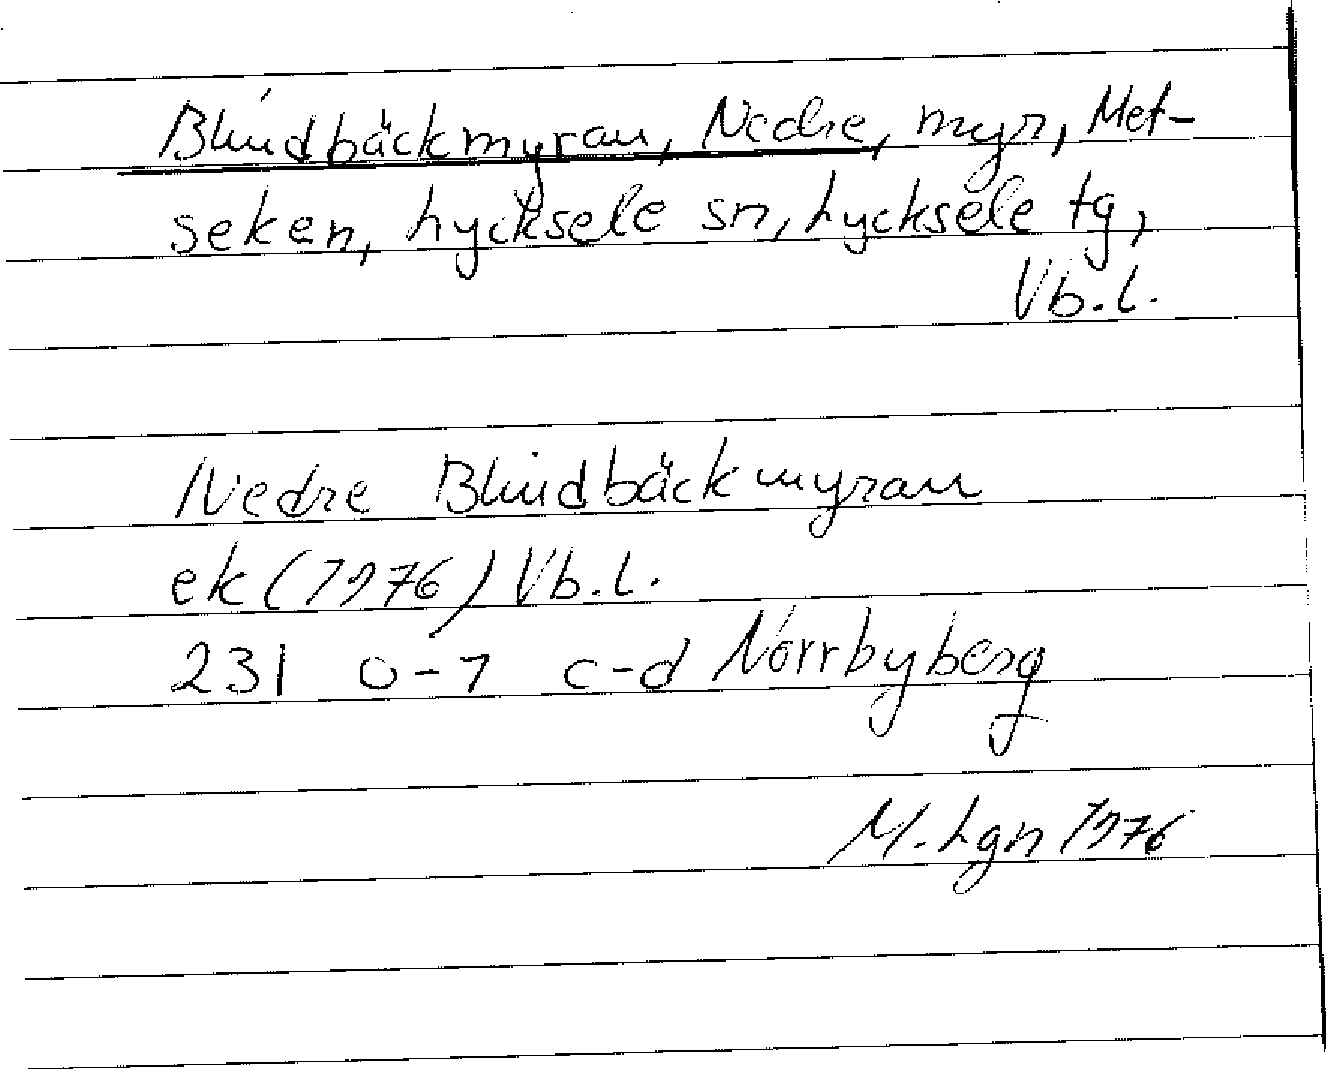 Blindbäckmyran, Nedre, myr, Met-
seken, Lycksele sn, Lycksele tg,
Vb.l.
Nedre Blindbäckmyran
ek (1976) Vb.l.
231 0-1 c-d Norrbyberg
M. Lgn 1976